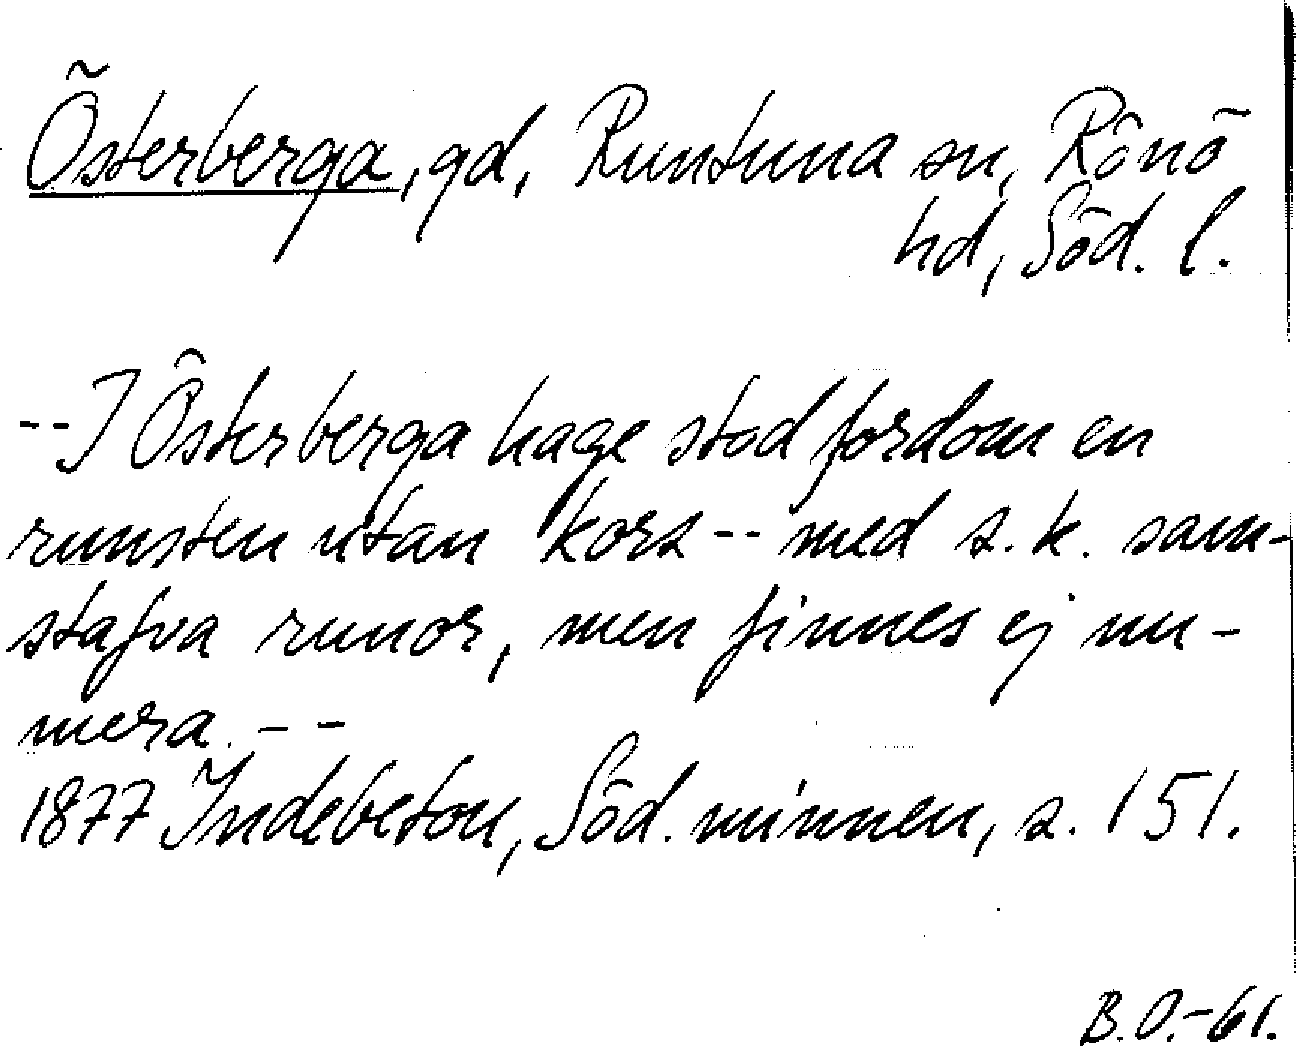 Österberga, gd, Runtuna sn, Rönö
hd, Söd. l.
--I Österberga hage stod fordom en
runsten utan kors -- med s. k. sam-
stafva runor, men finnes ej nu-
mera. --
1877 Indebetou, Söd. minnen, s. 151.
B.O.-61.